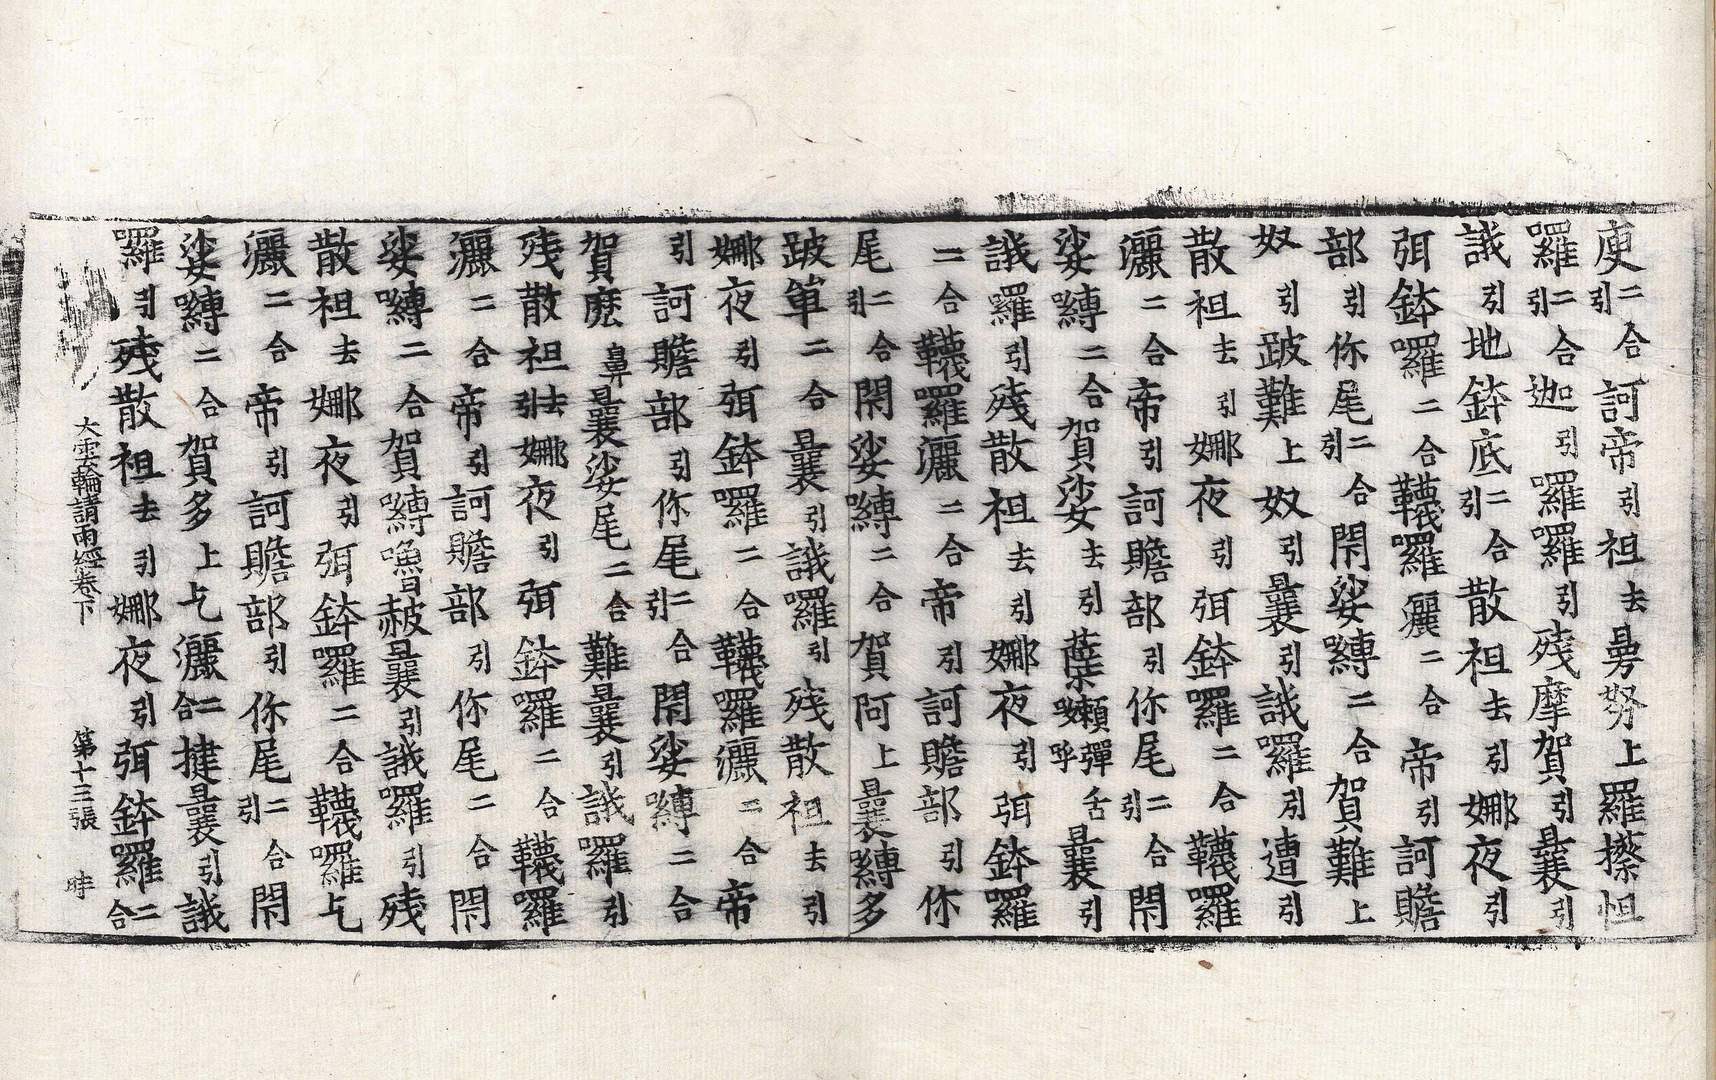 庾二合引訶帝引祖去曼努上羅攃怛
囉二合引迦引囉囉引殘摩賀引曩引
誐引地鉢底二合引散祖去引娜夜引
弭鉢囉二合韈囉灑二合帝引訶贍
部引你尾二合引閇娑嚩二合賀難上
奴引跛難上奴引曩引誐囉引遭引
散祖去引娜夜引弭鉢囉二合韈囉
灑二合帝引訶贍部引你尾二合引閇
娑嚩二合賀娑去引蘗嬾彈舌呼曩引
誐囉引殘散祖去引娜夜引弭鉢囉
二合韈囉灑二合帝引訶贍部引你
尾二合引閇娑嚩二合賀阿上曩嚩多
跛單二合曩引誐囉引殘散祖去引
娜夜引弭鉢囉二合韈囉灑二合帝
引訶贍部引你尾二合引閇娑嚩二合
賀麽鼻曩娑尾二合難曩引誐囉引
殘散祖去引娜夜引弭鉢囉二合韈囉
灑二合帝引訶贍部引你尾二合閇
娑嚩二合賀嚩嚕赧曩引誐囉引殘
散祖去娜夜引弭鉢囉二合韈囉乞
灑二合帝引訶贍部引你尾二合引閇
娑嚩二合賀多上乞灑二合揵曩引誐
囉引殘散祖去引娜夜引弭鉢囉二合
大雲輪請雨經卷下 第十三張